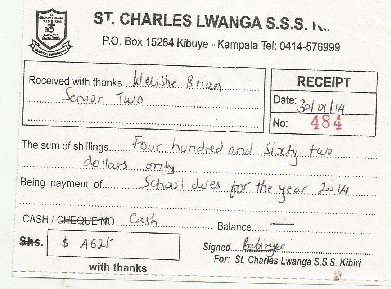 ST. CHARLES LWANGA S.S.S.
P.O. Box 15264 Kibuye - Kampala Tel: 0414-576999
Received with thanks Brian
Senior Two
RECEIPT
Date: 30/01/14
No: 484
The sum of shillings Four hundred and Sixty two
dollars only
Being payment of School dues for the year 2014
CASH / CHEQUE NO Cash Balance —
Shs. $
Signed
For: St. Charles Lwanga S.S.S. Kibiri
with thanks